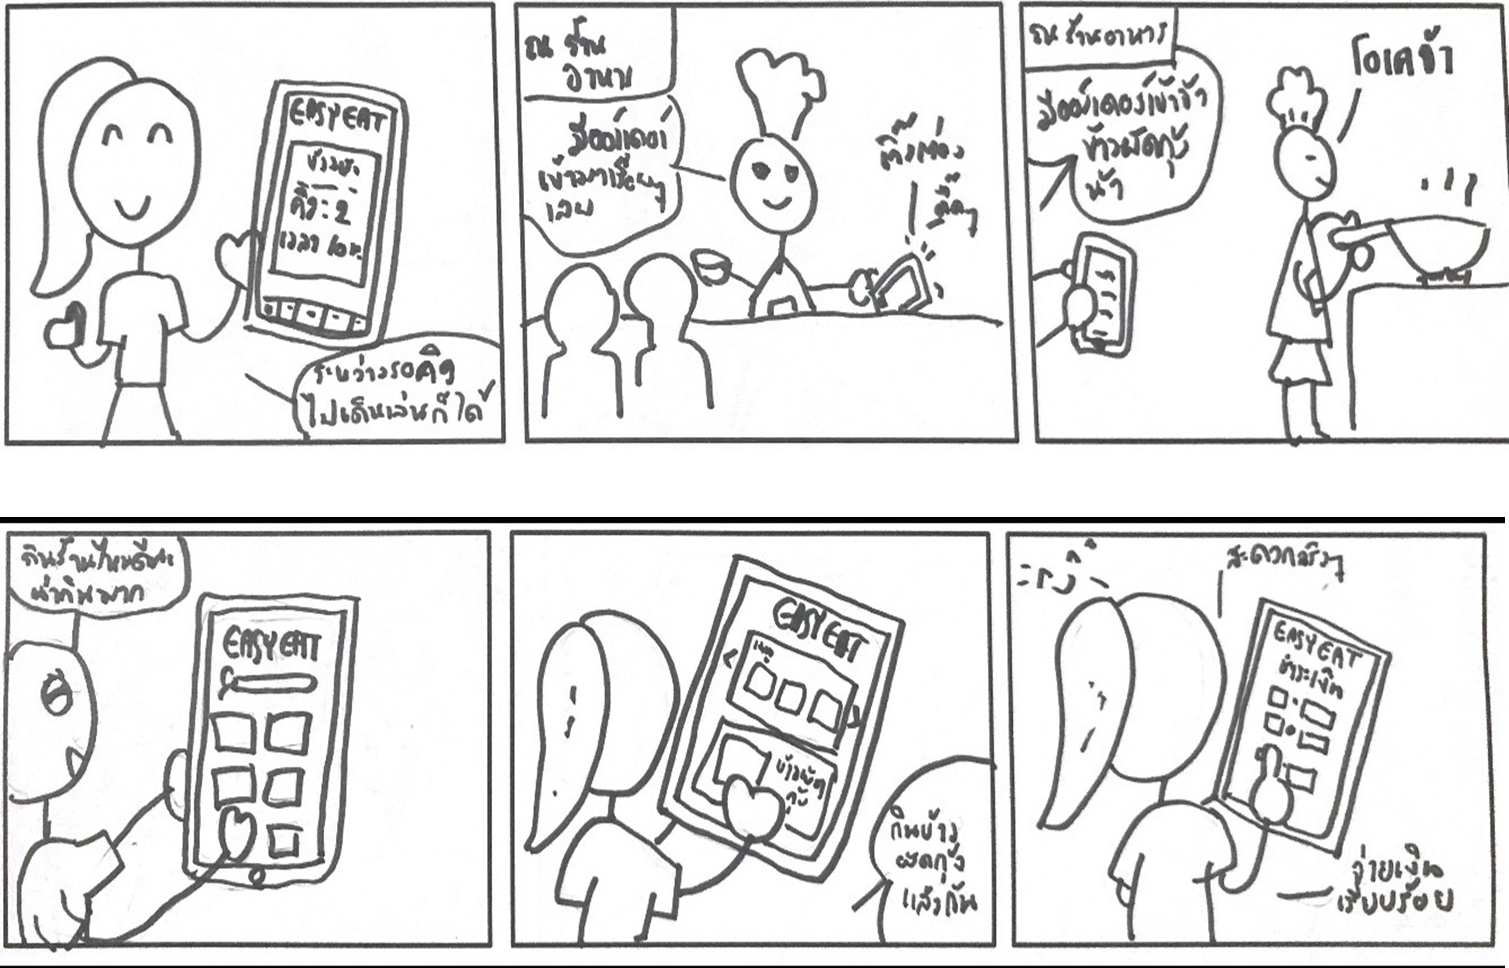 EASY EAT
ข้าวผัด
คิว: 2
เวลา 10 น.
ระหว่างรอคิว
ไปเดินเล่นก็ได้
ณ ร้าน
อาหาร
มีออร์เดอร์
เข้ามาเรื่อยๆ
เลย
ติ๊งต่อง
ณ ร้านอาหาร
มีออร์เดอร์เข้าจ้า
ข้าวผัดกุ้ง
น้า
โอเคจ้า
กินร้านไหนดีนะ
น่ากินมาก
EASY EAT
EASY EAT
เมนู
ข้าวผัด
กุ้ง
กินข้าว
ผัดกุ้ง
แล้วกัน
สะดวกจริงๆ
EASY EAT
ชำระเงิน
จ่ายเงิน
เรียบร้อย